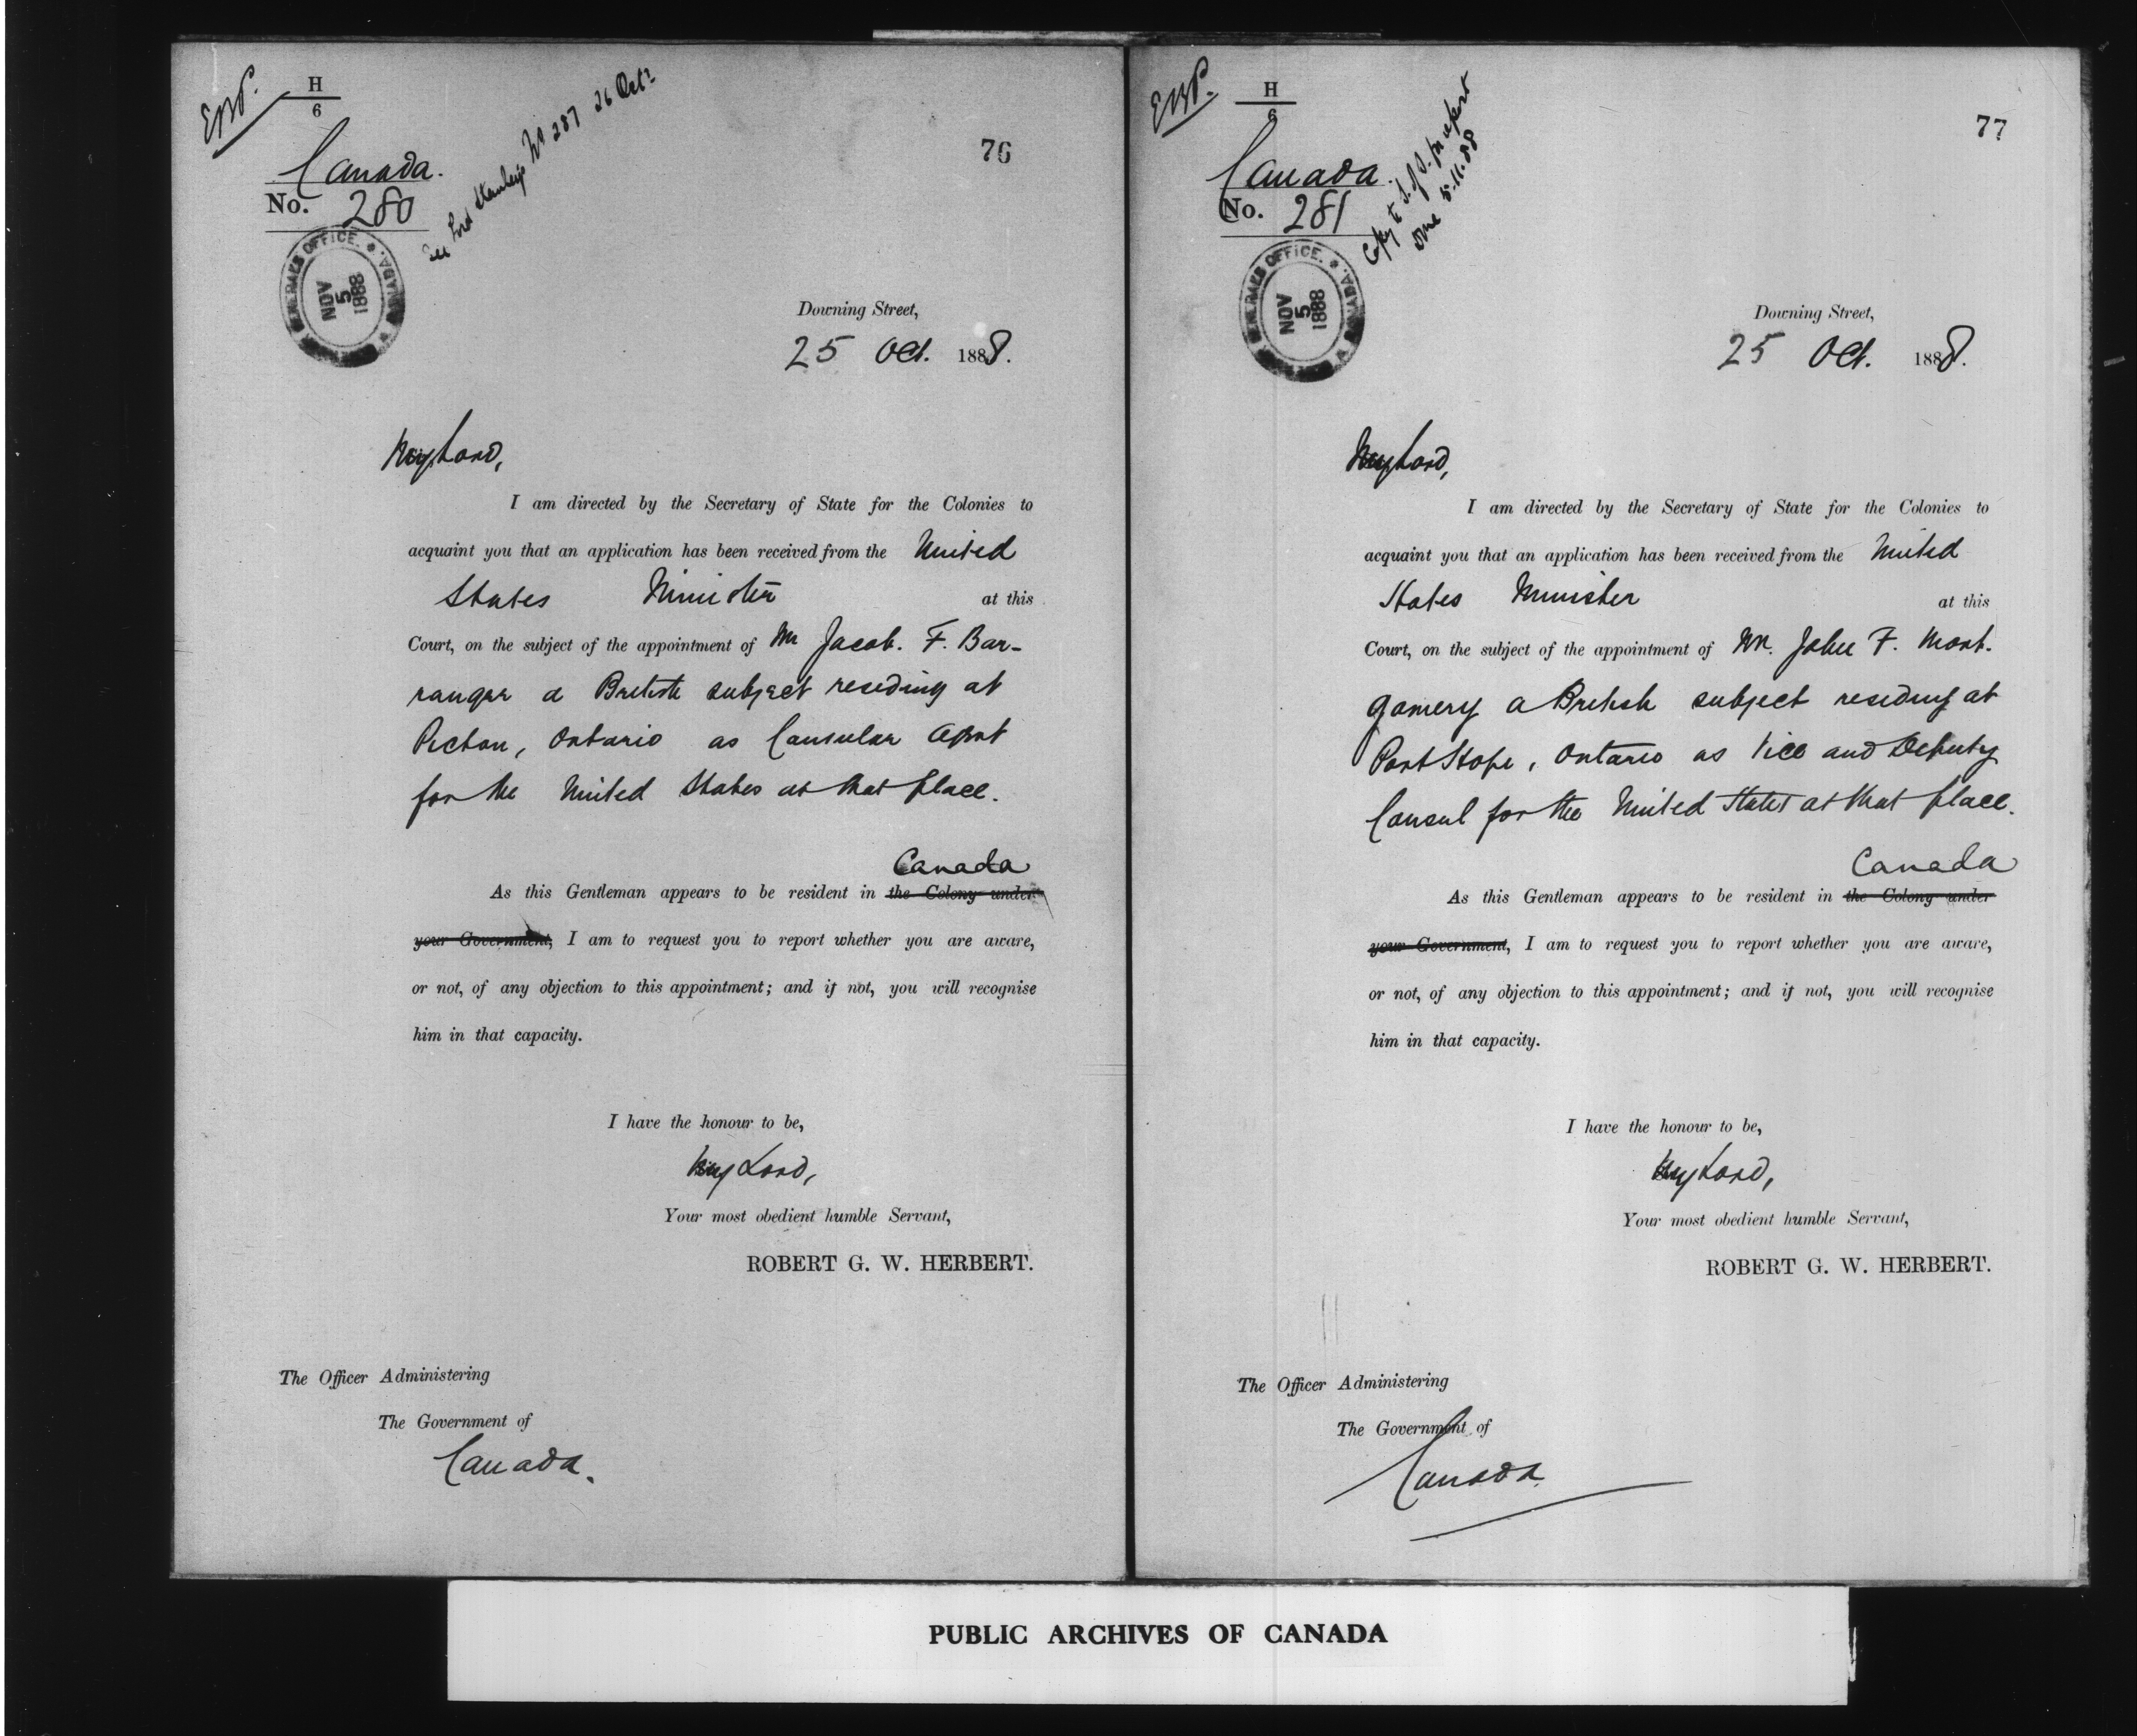 EWP.
H
6
See Lord Stanley's No 287 26 Octr
76
Canada.
No. 280
GENERAL'S OFFICE. CANADA.
NOV
5
1888
Downing Street,
25 Oct. 1888.
My Lord,
I am directed by the Secretary of State for the Colonies to
acquaint you that an application has been received from the United
States Minister at this
Court, on the subject of the appointment of Mr Jacob. F. Bar-
ranger a British subject residing at
Picton, Ontario as Consular Agent
for the United States at that place.
Canada
As this Gentleman appears to be resident in the Colony under
your Government, I am to request you to report whether you are aware,
or not, of any objection to this appointment; and if not, you will recognise
him in that capacity.
I have the honour to be,
My Lord,
Your most obedient humble Servant,
ROBERT G. W. HERBERT.
The Officer Administering
The Government of
Canada.
EWP.
H
6
Copy to S. of S. for report
done 5.11.88
77
Canada.
No. 281
GENERAL'S OFFICE. CANADA.
NOV
5
1888
Downing Street,
25 Oct. 1888.
My Lord,
I am directed by the Secretary of State for the Colonies to
acquaint you that an application has been received from the United
States Minister at this
Court, on the subject of the appointment of Mr. John F. Mont-
gomery a British subject residing at
Port Hope, Ontario as Vice and Deputy
Consul for the United States at that place.
Canada
As this Gentleman appears to be resident in the Colony under
your Government, I am to request you to report whether you are aware,
or not, of any objection to this appointment; and if not, you will recognise
him in that capacity.
I have the honour to be,
My Lord,
Your most obedient humble Servant,
ROBERT G. W. HERBERT.
The Officer Administering
The Government of
Canada.
PUBLIC ARCHIVES OF CANADA